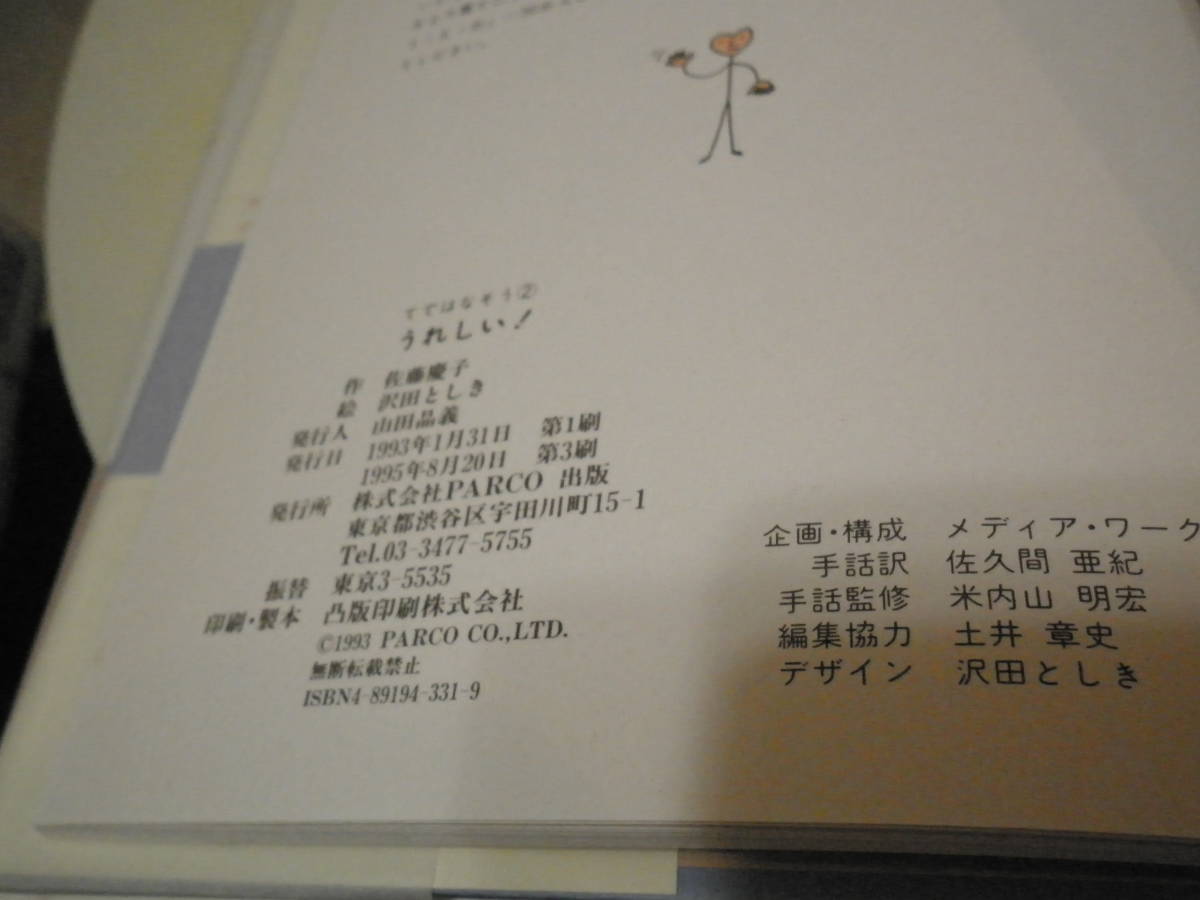 てではなそう②
うれしい!
作 佐藤慶子
絵 沢田としき
発行人 山田晶義
発行日 1993年1月31日 第1刷
1995年8月20日 第3刷
発行所 株式会社PARCO 出版
東京都渋谷区宇田川町15-1
Tel.03-3477-5755
振替 東京3-5535
印刷・製本 凸版印刷株式会社
©1993 PARCO CO.,LTD.
無断転載禁止
ISBN4-89194-331-9
企画・構成 メディア・ワーク
手話訳 佐久間 亜紀
手話監修 米内山 明宏
編集協力 土井 章史
デザイン 沢田としき